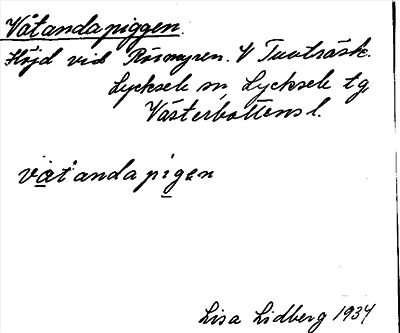 Våtandapiggen.
Höjd vid Rösmyren. V Tuvträsk.
Lycksele sn, Lycksele tg,
Västerbottens l.
våt'andapigεn
Lisa Lidberg 1934